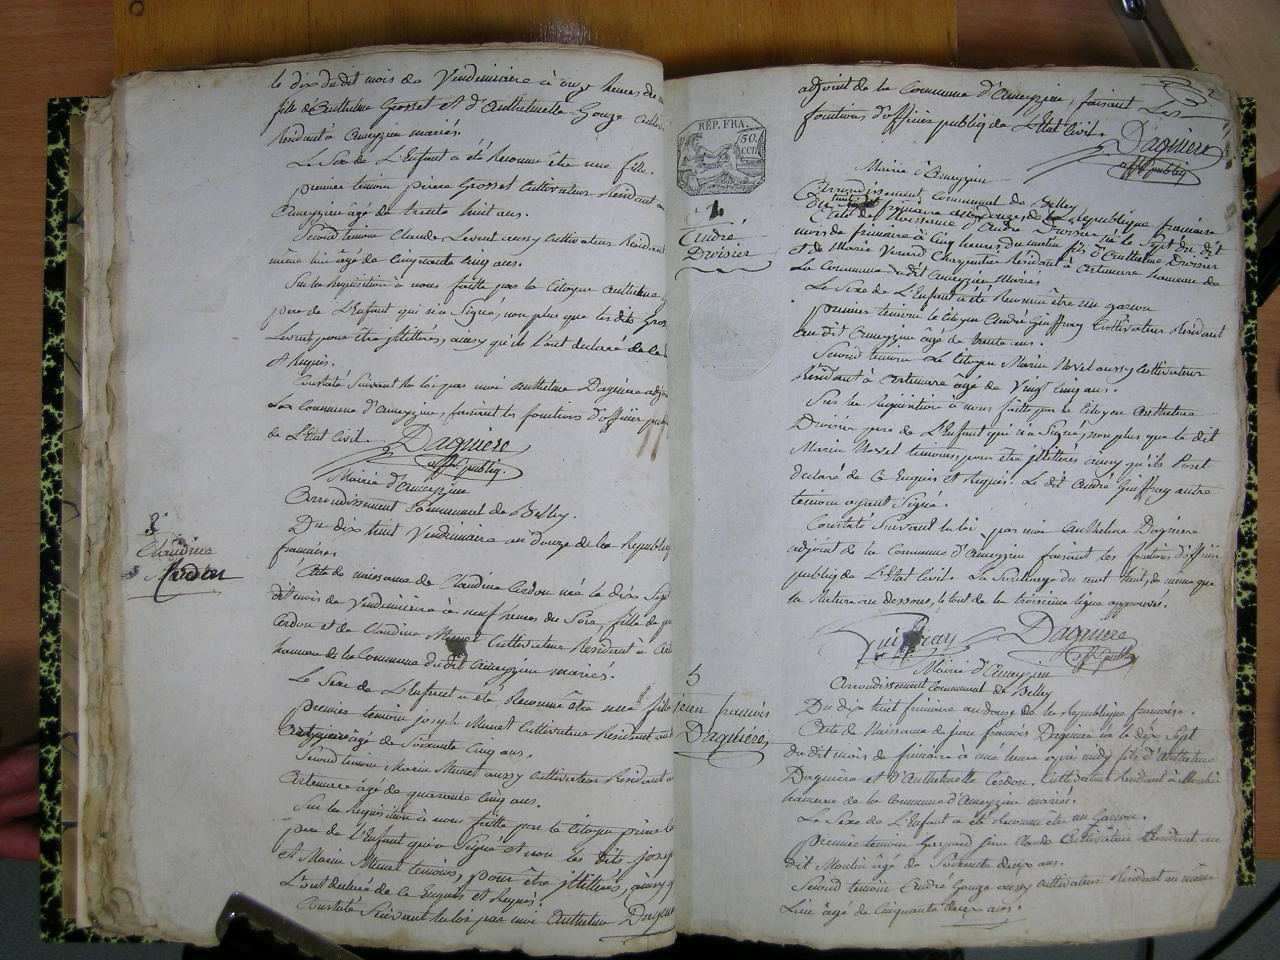 le dix du dit mois de Vendemiaire à onze heures du
fils d'Anthelme Grosset et d'Anthelmette Gouze
Résidant à Ameyzieu mariés.
Le Sexe de L'Enfant a été Reconnu être une fille.
premier temoin pierre Grosset Cultivateur Résidant
Ameyzieu âgé de trente huit ans.
Second temoin Claude Levrat aussy Cultivateur Résidant
même lieu âgé de Cinquante cinq ans.
Sur la Réquisition à nous faitte par le Citoyen Anthelme
pere de L'Enfant qui n'a Signé, non plus que les dits Gros
Levrat pour être illétérés, aussy qu'ils L'ont declaré de la
et Requis.
Constaté Suivant la loi par moi Anthelme Daguiere adj
La Commune d'Ameyzieu, faisant les fonctions d'officier pub
de L'Etat Civil.
Daguiere
off. publiq.
Mairie d'Ameyzieu
Arrondissement Communal de Belley.
3
Claudine
Cerdon
Du dix huit Vendemiaire an douze de la Republiq
francaise.
Acte de naissance de Claudine Cerdon née le dix Sept
dit mois de Vendemiaire à neuf heures du Soir, fille de
Cerdon et de Claudine Munet Cultivateur Résidant à
hameau de la Commune du dit Ameyzieu mariés.
Le Sexe de L'Enfant a été Reconnu être une fille
premier temoin joseph Munet Cultivateur Résidant
âgé de Soixante Cinq ans.
Second temoin Marin Munet aussy Cultivateur Résidant
Artemare âgé de quarante Cinq ans.
Sur la Requisition à nous faitte par le Citoyen
pere de L'Enfant qui a Signé et non les dits joseph
et Marin Munet temoins, pour être illétérés, aussy
L'ont declaré de ce Enquis et Requis.
Constaté Suivant la loi par moi Anthelme Daguiere
2
adjoint de la Commune d'Ameyzieu, faisant Les
fonctions d'officier publiq de L'Etat Civil.
Daguiere
off. publiq
RÉP. FRA.
50.
CEN
Mairie d'Ameyzieu
Arrondissement Communal de Belley
4
André
Druisier
Du huit frimaire an douze de la Republique francaise
Acte de Naissance d'André Druisier né le Sept du dit
mois de frimaire à Cinq heures du matin fils d'Anthelme Druisier
et de Marie Charpentier Résidant à Artemare hameau de
La Commune du dit Ameyzieu Mariés.
Le Sexe de L'Enfant a été Reconnu être un garcon
premier temoin le Citoyen André Guiffray Cultivateur Résidant
au dit Ameyzieu âgé de trente ans.
Second temoin Le Citoyen Marin aussy Cultivateur
Résidant à Artemare âgé de Vingt cinq ans.
Sur la Requisition à nous faitte par le Citoyen Anthelme
Druisier pere de L'Enfant qui n'a Signé, non plus que le dit
Marin temoins, pour être illétérés aussy qu'ils L'ont
declaré de ce Enquis et Requis. Le dit André Guiffray autre
temoin ayant Signé.
Constaté Suivant la loi par moi Anthelme Daguiere
adjoint de la Commune d'Ameyzieu faisant les fonctions d'officier
publiq de L'Etat Civil. La Surcharge du mot huit, de même que
la Rature au dessous, le tout de la troisieme ligne approuvés.
Guiffray
Daguiere
off. publiq
Mairie d'Ameyzieu
Arrondissement Communal de Belley
5
jean francois
Daguiere
Du dix huit frimaire an douze de la Republique francaise.
Acte de Naissance de jean francois Daguiere né le dix Sept
du dit mois de frimaire à une heure après midy fils d'Anthelme
Daguiere et d'Anthelmette Cerdon. Cultivateur Résidant à
hameau de la Commune d'Ameyzieu mariés.
Le Sexe de L'Enfant a été Reconnu être un Garcon.
premier temoin jean Claude Cultivateur Résidant au
Dit Moulin âgé de Soixante deux ans.
Second temoin André Gouze aussy Cultivateur Résidant au même
Lieu âgé de Cinquante deux ans.